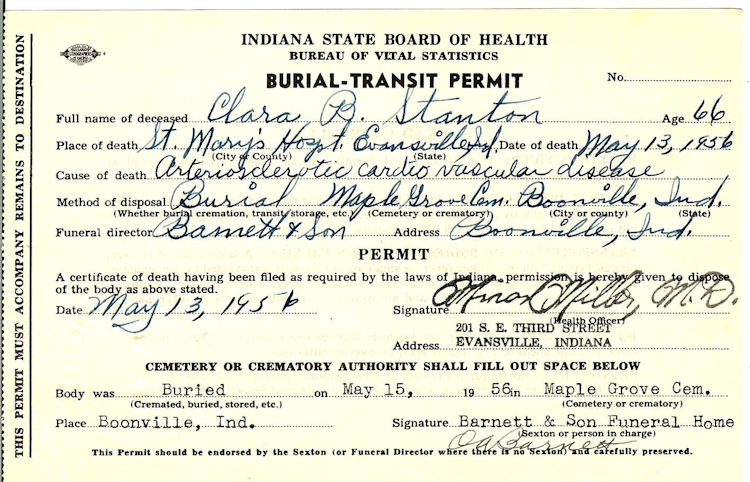 INDIANA STATE BOARD OF HEALTH
BUREAU OF VITAL STATISTICS
BURIAL-TRANSIT PERMIT
No.
Full name of deceased Clara B. Stanton Age 66
Place of death St. Mary's Hospt. Evansville, Ind. Date of death May 13, 1956
(City or County) (State)
Cause of death Arteriosclerotic cardio vascular disease
Method of disposal Burial Maple Grove Cem. Boonville, Ind.
(Whether burial cremation, transit, storage, etc.) (Cemetery or crematory) (City or county) (State)
Funeral director Barnett & Son Address Boonville, Ind.
PERMIT
A certificate of death having been filed as required by the laws of Indiana, permission is hereby given to dispose
of the body as above stated.
Date May 13, 1956 Signature Minor Miller, M.D.
(Health Officer)
201 S. E. THIRD STREET
Address EVANSVILLE, INDIANA
CEMETERY OR CREMATORY AUTHORITY SHALL FILL OUT SPACE BELOW
Body was Buried on May 15, 19 56 in Maple Grove Cem.
(Cremated, buried, stored, etc.) (Cemetery or crematory)
Place Boonville, Ind. Signature Barnett & Son Funeral Home
(Sexton or person in charge)
O A Barnett
This Permit should be endorsed by the Sexton (or Funeral Director where there is no Sexton) and carefully preserved.
THIS PERMIT MUST ACCOMPANY REMAINS TO DESTINATION